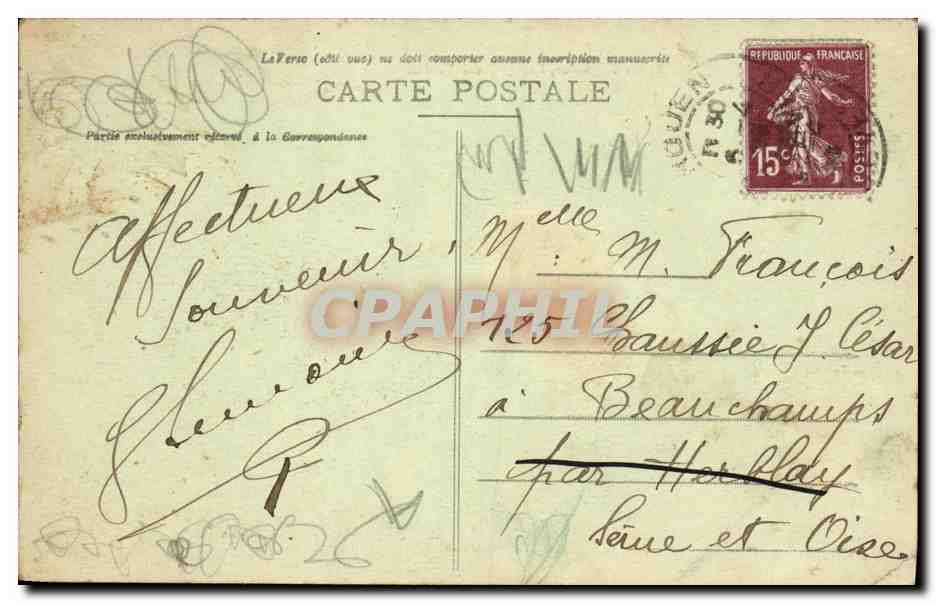 Le Verso (côté vue) ne doit comporter aucune inscription manuscrite
CARTE POSTALE
Partie exclusivement réservé à la Correspondance
Affectueux
Souvenir
Melle M. François
125 Chaussée J. César
à Beauchamps
par Herblay
Seine et Oise
REPUBLIQUE FRANÇAISE
15c
POSTES
ROUEN
30
CPARHIL